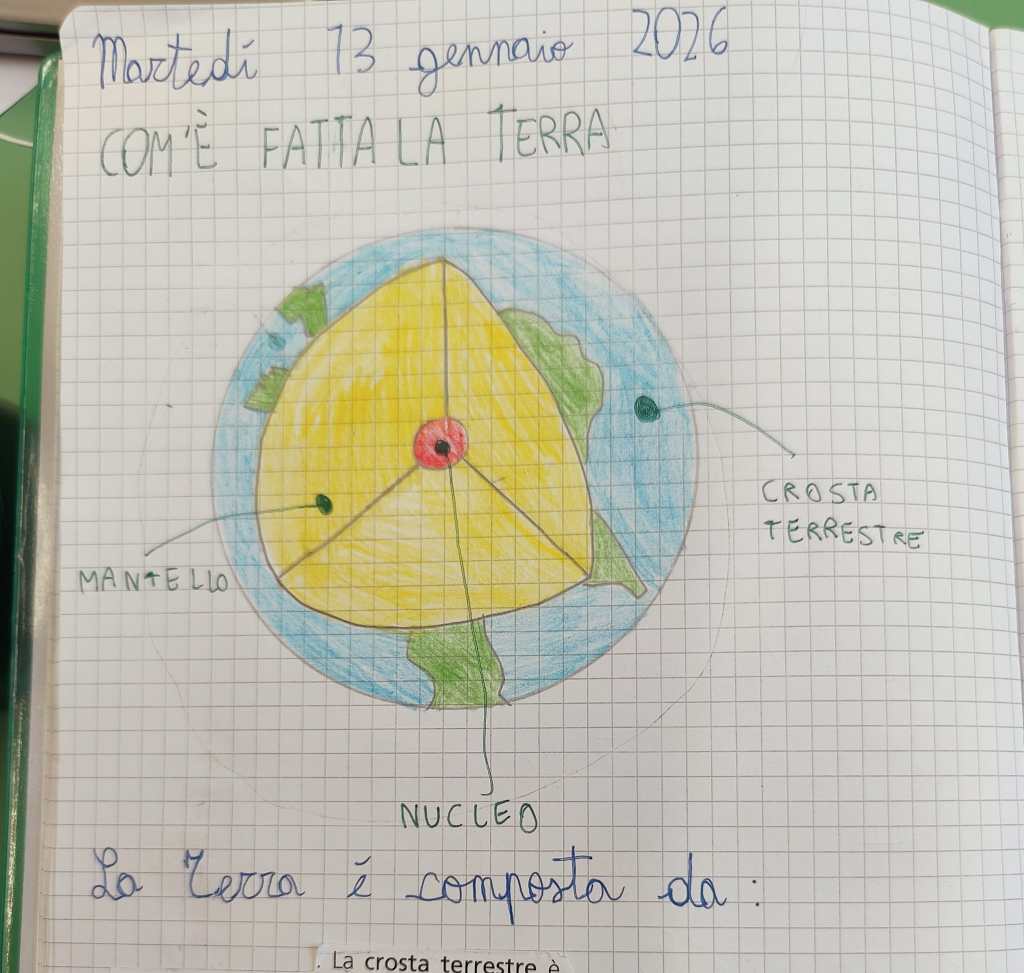 Martedí 13 gennaio 2026
COM'È FATTA LA TERRA
CROSTA
TERRESTRE
MANTELLO
NUCLEO
La Terra è composta da :
. La crosta terrestre è